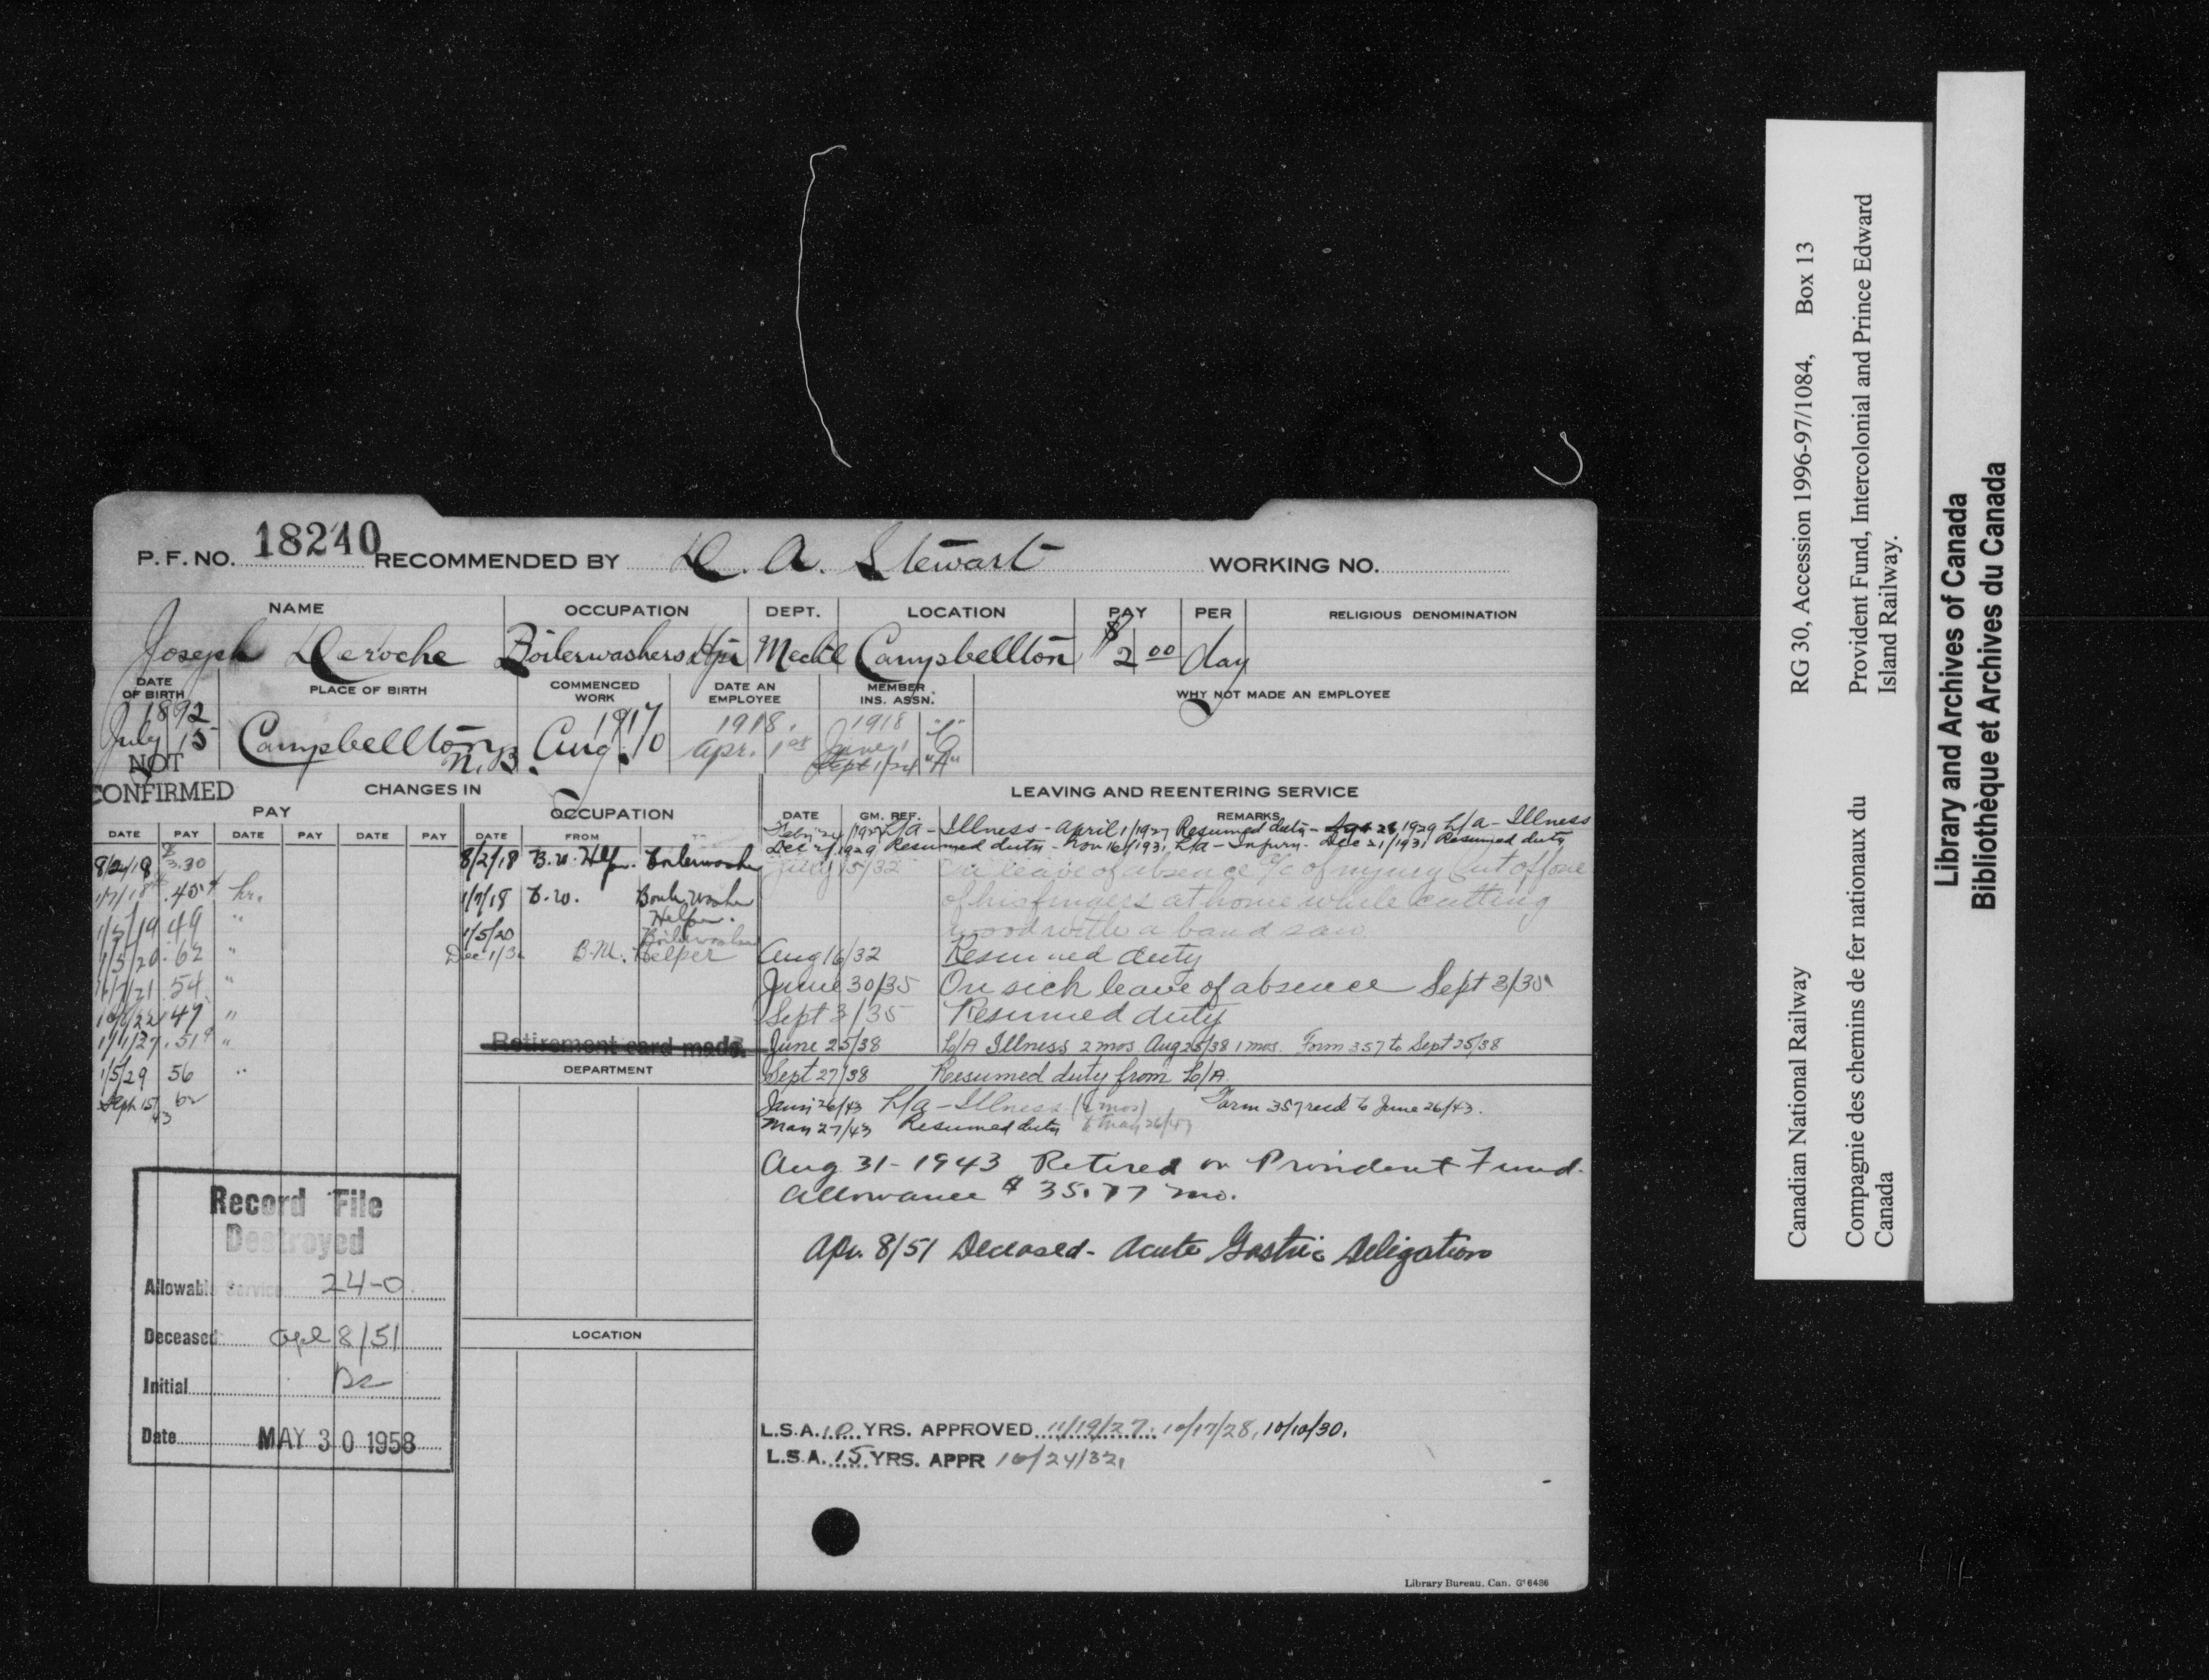 P. F. NO. 18240 RECOMMENDED BY D. A. Stewart WORKING NO.
NAME OCCUPATION DEPT. LOCATION PAY PER RELIGIOUS DENOMINATION
Joseph Deroche Boilerwashers Hpr Mechl Campbellton $2 00 day
DATE OF BIRTH PLACE OF BIRTH COMMENCED WORK DATE AN EMPLOYEE MEMBER INS. ASSN. WHY NOT MADE AN EMPLOYEE
1892 1917 1918. 1918 "C"
July 15 Campbellton Aug. 10 Apr. 1st June 1
N.B. Sept 1/24 "A"
NOT
CONFIRMED
CHANGES IN
PAY OCCUPATION
DATE PAY DATE PAY DATE PAY DATE FROM TO
8/2/18 $3.30
1/7/18 .45¢ hr.
1/5/19 49 "
1/5/20 .62 "
16/7/21 54 "
47 "
1/1/27 .51¢ "
1/5/29 56 "
Sept 15/43 62
8/2/18 B.W. Helpr. Boilerwasher
1/7/18 B.W. Boiler Washer
Helper.
1/5/20 Boilerwasher
Dec 1/32 B.M. Helper
Retirement card made.
DEPARTMENT
LOCATION
LEAVING AND REENTERING SERVICE
DATE GM. REF. REMARKS
Feb'y 1927 L/A - Illness - April 1/1927 Resumed duty - 28, 1929 L/A - Illness
Dec 1929 Resumed duty - Nov 16/1931 L/A - Injury - Dec 21/1931 Resumed duty
July 15/32 On leave of absence a/c of injury Cut off one
of his fingers at home while cutting
wood with a band saw
Aug 16/32 Resumed duty
June 30/35 On sick leave of absence Sept 3/35
Sept 3/35 Resumed duty
June 25/38 L/A Illness 2 mos Aug 25/38 1 mos. Form 357 to Sept 25/38
Sept 27/38 Resumed duty from L/A.
26/43 L/A - Illness Form 357 recd to June 26/43.
May 27/43 Resumed duty
Aug 31 - 1943 Retired on Provident Fund.
Allowance $35.77 mo.
Apr. 8/51 Deceased - Acute Gastric Deligation
L.S.A. 10 YRS. APPROVED 11/19/27. 10/17/28, 10/10/30.
L.S.A. 15 YRS. APPR 10/24/32.
Record File
Destroyed
Allowable Service 24-0
Deceased Apl 8/51
Initial
Date MAY 30 1958
Library Bureau. Can. G16436
Canadian National Railway RG 30, Accession 1996-97/1084, Box 13
Compagnie des chemins de fer nationaux du Canada
Provident Fund, Intercolonial and Prince Edward Island Railway.
Library and Archives of Canada
Bibliothèque et Archives du Canada